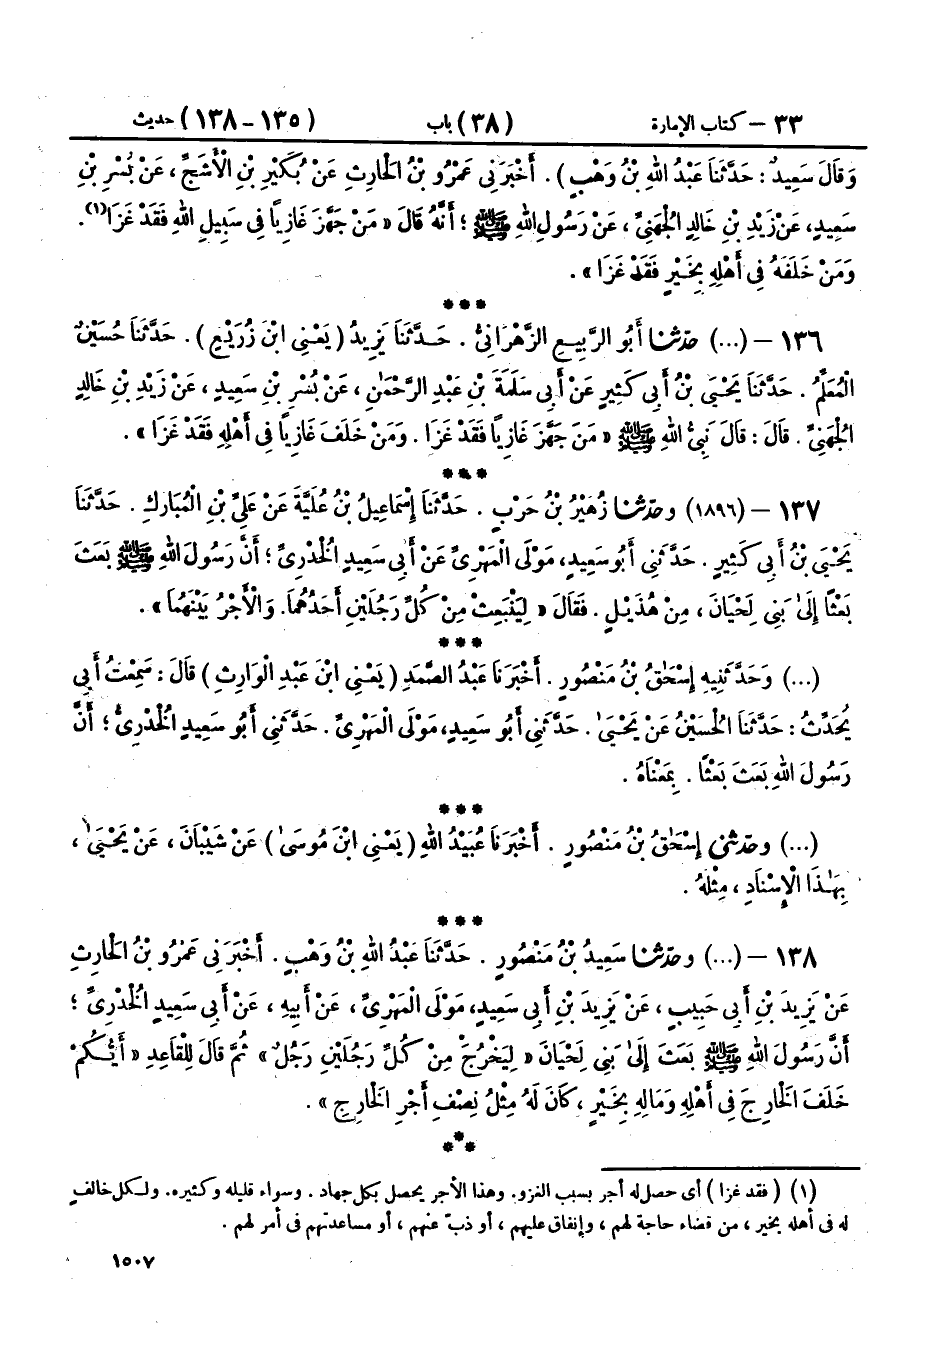 ٣٣ – كتاب الإمارة (٣٨) باب (١٣٥ – ١٣٨) حديث
وَقَالَ سَعِيدٌ : حَدَّثَنَا عَبْدُ اللهِ بْنُ وَهْبٍ ) . أَخْبَرَنِى عَمْرُو بْنُ الْحَارِثِ عَنْ بُكَيْرِ بْنِ الْأَشَجِّ ، عَنْ بُسْرِ بْنِ
سَعِيدٍ، عَنْ زَيْدِ بْنِ خَالِدٍ الْجُهَنِىِّ ، عَنْ رَسُولِ اللهِ ﷺ ؛ أَنَّهُ قَالَ « مَنْ جَهَّزَ غَازِيًا فِى سَبِيلِ اللهِ فَقَدْ غَزَا(١) .
وَمَنْ خَلَفَهُ فِى أَهْلِهِ بِخَيْرٍ فَقَدْ غَزَا » .
***
١٣٦ – (...) حدّثنا أَبُو الرَّبِيعِ الزَّهْرَانِىُّ . حَدَّثَنَا يَزِيدُ ( يَعْنِى ابْنَ زُرَيْعٍ ) . حَدَّثَنَا حُسَيْنٌ
الْمُعَلِّمُ . حَدَّثَنَا يَحْيَى بْنُ أَبِى كَثِيرٍ عَنْ أَبِى سَلَمَةَ بْنِ عَبْدِ الرَّحْمَٰنِ ، عَنْ بُسْرِ بْنِ سَعِيدٍ ، عَنْ زَيْدِ بْنِ خَالِدٍ
الْجُهَنِىِّ . قَالَ : قَالَ نَبِىُّ اللهِ ﷺ « مَنْ جَهَّزَ غَازِيًا فَقَدْ غَزَا . وَمَنْ خَلَفَ غَازِيًا فِى أَهْلِهِ فَقَدْ غَزَا » .
***
١٣٧ – (١٨٩٦) وحدّثنا زُهَيْرُ بْنُ حَرْبٍ . حَدَّثَنَا إِسْمَاعِيلُ بْنُ عُلَيَّةَ عَنْ عَلِىِّ بْنِ الْمُبَارَكِ . حَدَّثَنَا
يَحْيَىٰ بْنُ أَبِى كَثِيرٍ . حَدَّثَنِى أَبُو سَعِيدٍ، مَوْلَى الْمَهْرِىِّ عَنْ أَبِى سَعِيدٍ الْخُدْرِىِّ ؛ أَنَّ رَسُولَ اللهِ ﷺ بَعَثَ
بَعْثًا إِلَىٰ بَنِى لَحْيَانَ ، مِنْ هُذَيْلٍ . فَقَالَ « لِيَنْبَعِثْ مِنْ كُلِّ رَجُلَيْنِ أَحَدُهُمَا. وَالْأَجْرُ بَيْنَهُمَا » .
***
(...) وَحَدَّثَنِيهِ إِسْحَٰقُ بْنُ مَنْصُورٍ . أَخْبَرَنَا عَبْدُ الصَّمَدِ ( يَعْنِى ابْنَ عَبْدِ الْوَارِثِ ) قَالَ : سَمِعْتُ أَبِى
يُحَدِّثُ : حَدَّثَنَا الْحُسَيْنُ عَنْ يَحْيَىٰ . حَدَّثَنِى أَبُو سَعِيدٍ، مَوْلَى الْمَهْرِىِّ . حَدَّثَنِى أَبُو سَعِيدٍ الْخُدْرِىُّ ؛ أَنَّ
رَسُولَ اللهِ بَعَثَ بَعْثًا . بِمَعْنَاهُ .
***
(...) وحدّثنى إِسْحَٰقُ بْنُ مَنْصُورٍ . أَخْبَرَنَا عُبَيْدُ اللهِ ( يَعْنِى ابْنَ مُوسَىٰ ) عَنْ شَيْبَانَ ، عَنْ يَحْيَىٰ ،
بِهَٰذَا الْإِسْنَادِ ، مِثْلَهُ .
***
١٣٨ – (...) وحدّثنا سَعِيدُ بْنُ مَنْصُورٍ . حَدَّثَنَا عَبْدُ اللهِ بْنُ وَهْبٍ . أَخْبَرَنِى عَمْرُو بْنُ الْحَارِثِ
عَنْ يَزِيدَ بْنِ أَبِى حَبِيبٍ ، عَنْ يَزِيدَ بْنِ أَبِى سَعِيدٍ، مَوْلَى الْمَهْرِىِّ ، عَنْ أَبِيهِ ، عَنْ أَبِى سَعِيدٍ الْخُدْرِىِّ ؛
أَنَّ رَسُولَ اللهِ ﷺ بَعَثَ إِلَىٰ بَنِى لَحْيَانَ « لِيَخْرُجْ مِنْ كُلِّ رَجُلَيْنِ رَجُلٌ » ثُمَّ قَالَ لِلْقَاعِدِ « أَيُّكُمْ
خَلَفَ الْخَارِجَ فِى أَهْلِهِ وَمَالِهِ بِخَيْرٍ ، كَانَ لَهُ مِثْلُ نِصْفِ أَجْرِ الْخَارِجِ » .
***
(١) ( فقد غزا ) أى حصل له أجر بسبب الغزو. وهذا الأجر يحصل بكل جهاد . وسواء قليله وكثيره. ولكل خالف
له فى أهله بخير ، من قضاء حاجة لهم ، وإنفاق عليهم ، أو ذبّ عنهم ، أو مساعدتهم فى أمر لهم .
١٥٠٧